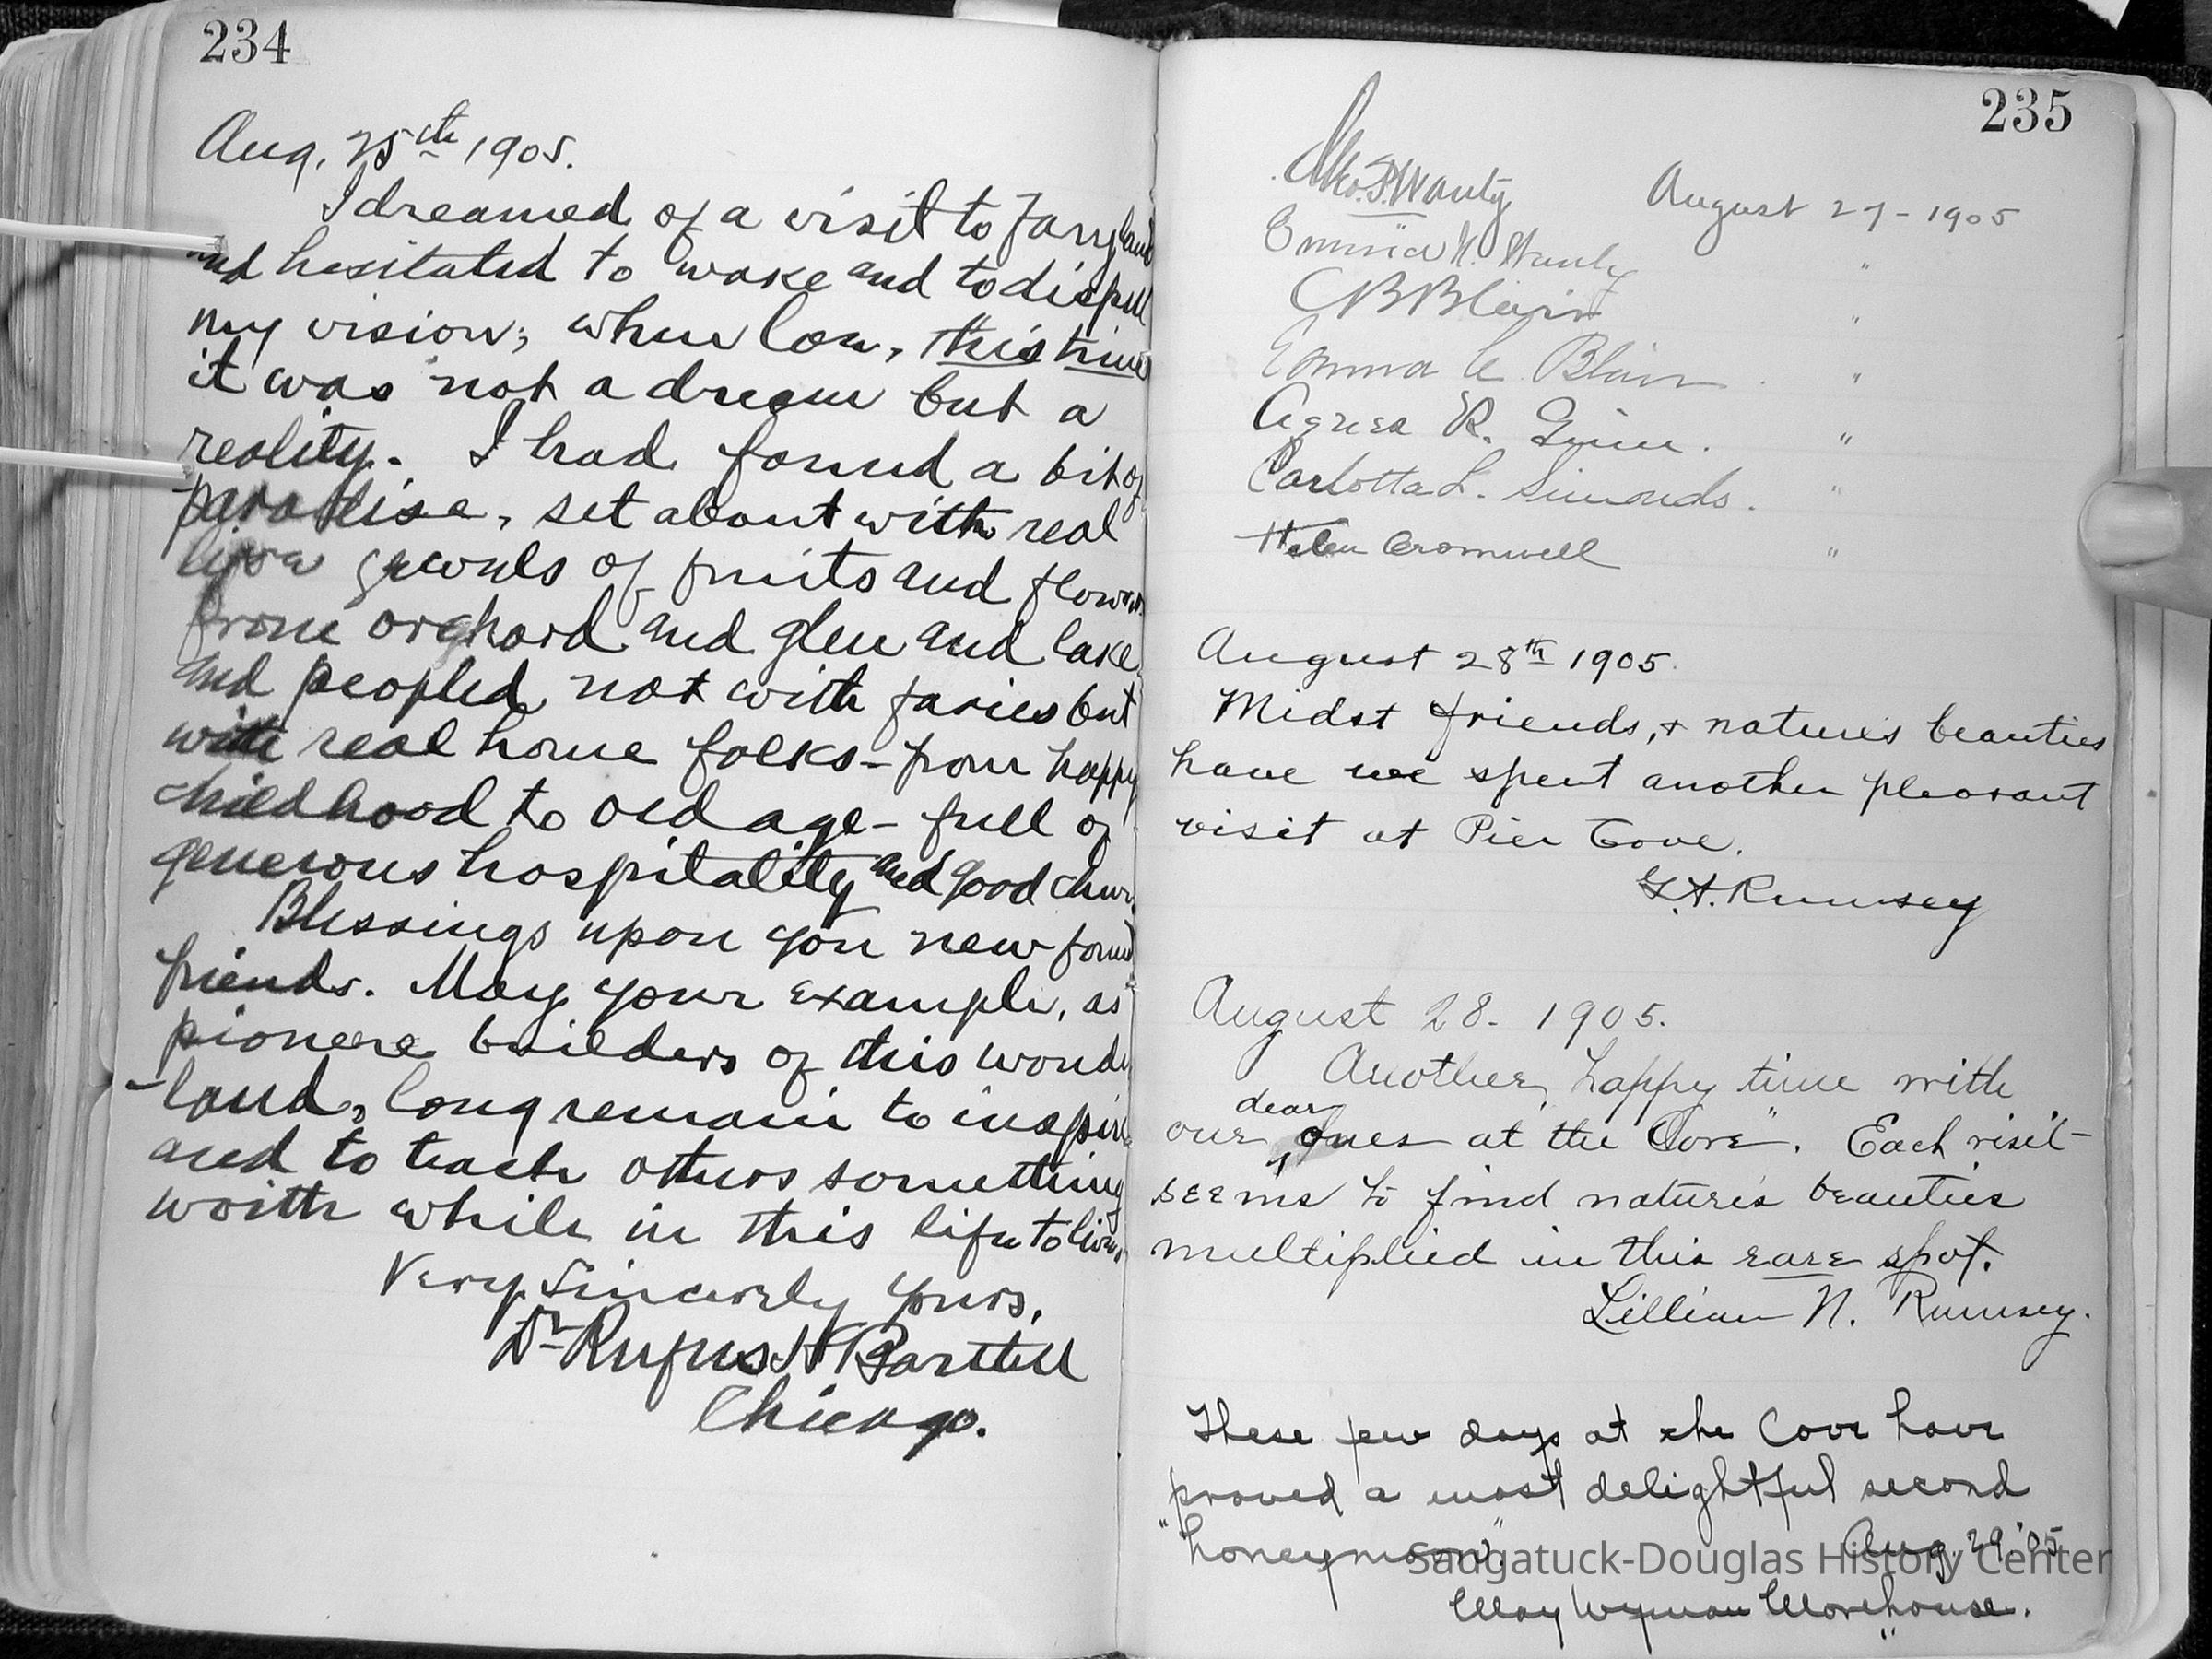 234
Aug. 25th 1905.
I dreamed of a visit to Faryland
and hesitated to wake and to dispell
my vision; when low, this time
it was not a dream but a
reality. I had found a bit of
paradise, set about with real
live jewels of fruits and flowers
from orchard and glen and lake
and peopled not with faries but
with real home folks - from happy
childhood to old age - full of
generous hospitality and good cheer
Blessings upon you new found
friends. May your example, as
pioneer builders of this wonder
-land, long remain to inspire
and to teach others something
worth while in this life to live.
Very Sincerely yours,
Dr Rufus H Bartlett
Chicago.
235
Geo. P. Wanty August 27 - 1905
Emma N. Wanty "
C B Blair "
Emma C. Blair "
Agnes R. "
Carlotta L. Simonds. "
Helen Cromwell "
August 28th 1905.
Midst friends, & nature's beauties
have we spent another pleasant
visit at Pier Cove.
G. A. Rumsey
August 28. 1905.
Another happy time with
our dear ones at the "Cove". Each visit
seems to find nature's beauties
multiplied in this rare spot.
Lillian N. Rumsey.
These few days at the Cove have
proved a most delightful second
"honeymoon". Aug. 29. '05
May Wyman Morehouse.
Saugatuck-Douglas History Center